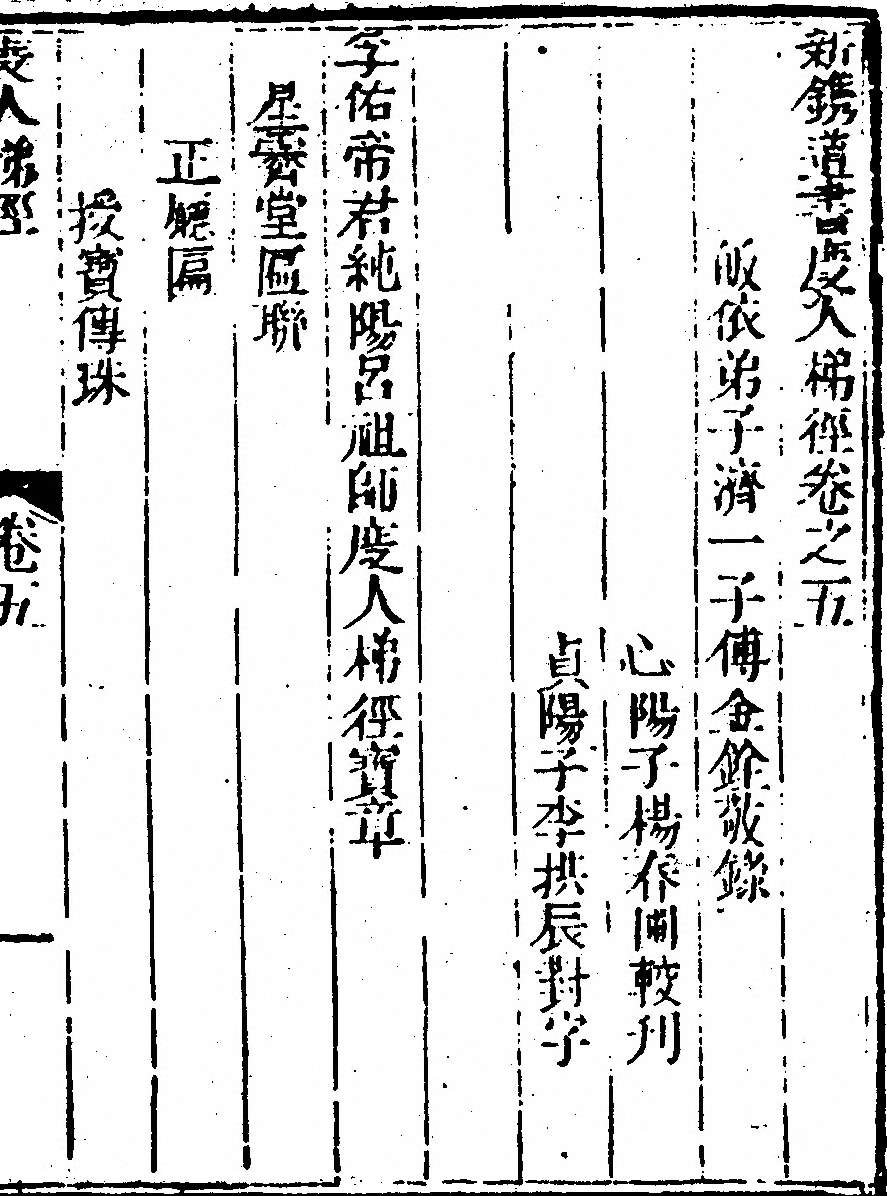 新鐫道書度人梯徑卷之五
皈依弟子濟一子傅金銓敬錄
心陽子楊春圃較刊
貞陽子李拱辰對字
孚佑帝君純陽呂祖師度人梯徑寶章
星霽堂匾聯
正廳匾
授寶傳珠
度人梯徑 卷五 一